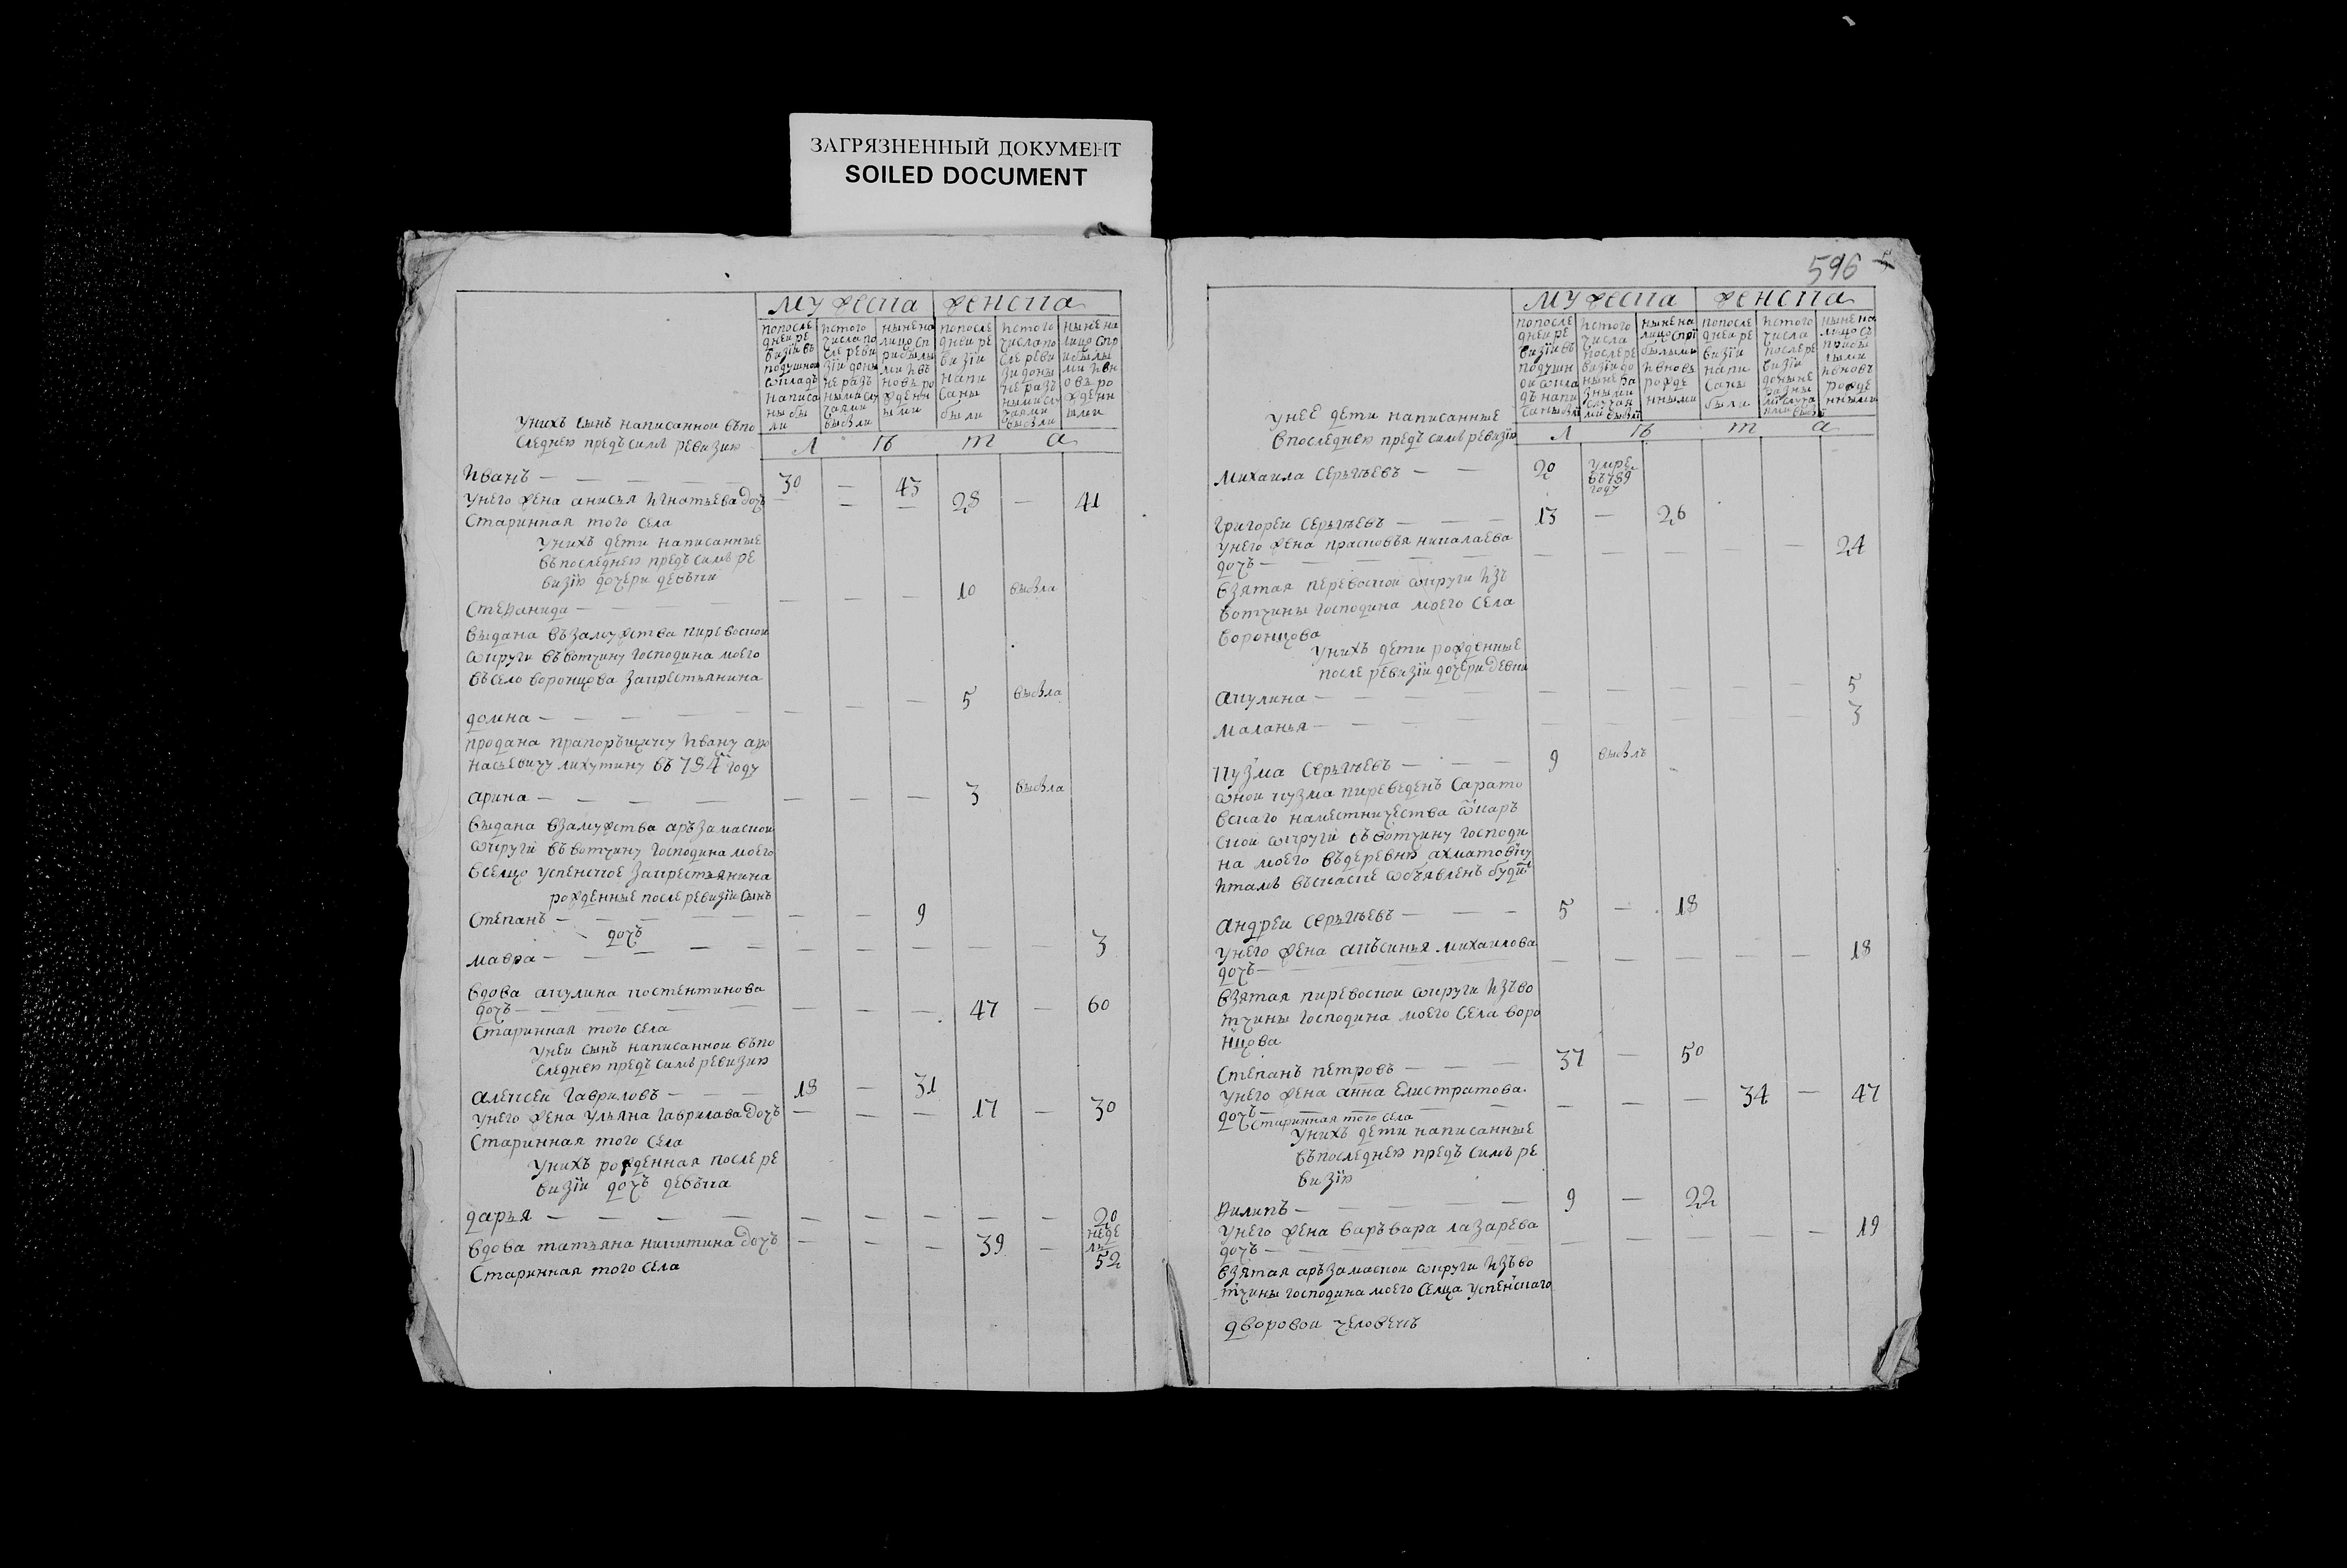 ЗАГРЯЗНЕННЫЙ ДОКУМЕНТ
SOILED DOCUMENT
мужеска женска
попосле дней ревизїи въ подушной окладъ написаны были
истого числа по сле ревизїи доны не разъ ными случаями выбыли
ныне на лицо сприбылыми ивъ новь рожденными
попосле дней ревизїи написаны были
истого числа по сле ревизи доны не разъ ными случаями выбыли
ныне на лицо сприбылыми ивновь рожденными
Л ѣ т а
унихъ сынъ написанной въпо
следнею предъ симъ ревизию
Иванъ — 30 — 43
унего жена анисья игнатьева дочь — — — 28 — 41
Старинная того села
унихъ дети написанные
въпоследнею предъ симъ ре
визїю дочери девъки
Степанида — — — — 10 выбыла
выдана въ замужства киревской
округи въ вотчину господина моего
въ село воронцова за крестьянина
домна — — — — 5 выбыла
продана прапоръщику ивану афо
насьевичу лихутину въ 784м году
арина — — — — 3 выбыла
выдана взамужства аръзамаской
округи въ вотчину господина моего
вселцо успенское за крестьянина
рожденные после ревизїи сынъ
Степанъ — — — 9
дочь
мавра — — — — — — 3
вдова акулина костентинова
дочь — — — — 47 — 60
Старинная того села
уней сынъ написанной въпо
следнею предъ симъ ревизию
алексей Гавриловъ — 18 — 31
унего жена ульяна Гаврилава дочь — — — 17 — 30
Старинная того села
унихъ рожденная после ре
визїи дочь девъка
дарья — — — — — — 20 неде ль
вдова татьяна никитина дочь — — — 39 — 52
Старинная того села
596
мужеска женска
попосле дней ре визїи въ подушн ой окла дъ напи саны были
истого числа после ре визїи до ныне ра зными случая ми выбыли
ныне на лицо спри былыми ивновь рожде нными
попосле дней ре визїи напи саны были
истого числа после ре визїи доныне разны ми случа ями выбыли
ныне на лицо съ прибы лыми ивновь рожде нными
Л ѣ т а
унее дети написанные
впоследнею предъ симъ ревизїю
михаила Серьгѣевъ — 20 умре въ 789 году
григорей Серьгѣевъ — 13 — 26
унего жена прасковья никалаева
дочь — — — — — — 24
взятая киревской округи изъ
вотчины господина моего села
воронцова
унихъ дети рожденные
после ревизїи дочери девки
акулина — — — — — — 5
маланья — — — — — — 3
кузма Серьгѣевъ — 9 выбылъ
оной кузма пиреведенъ сарато
вскаго наместничества аткаръ
ской округи въ вотчину господи
на моего въ деревню ахматовку
итамъ въ скаске объявленъ будит
андрей Серьгѣевъ — 5 — 18
унего жена акъсинья михаилова
дочь — — — — — — 18
взятая киревской округи изъ во
тчины господина моего села воро
нцова
Степанъ петровъ — 37 — 50
унего жена анна Елистратова
дочь — — — — 34 — 47
Старинная того села
унихъ дети написанные
въпоследнею предъ симъ ре
визїю
филипъ — 9 — 22
унего жена варъвара лазарева
дочь — — — — — — 19
взятая аръзамаской округи изъ во
тчины господина моего селца успенскаго
дворовой человекъ